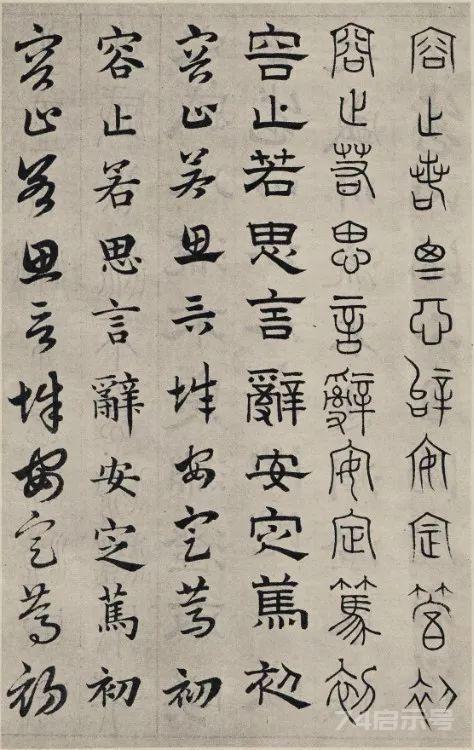 容止若思言辭安定篤初
容止若思言辭安定篤初
容止若思言辭安定篤初
容止若思言辭安定篤初
容止若思言辭安定篤初
容止若思言辭安定篤初
74启示号